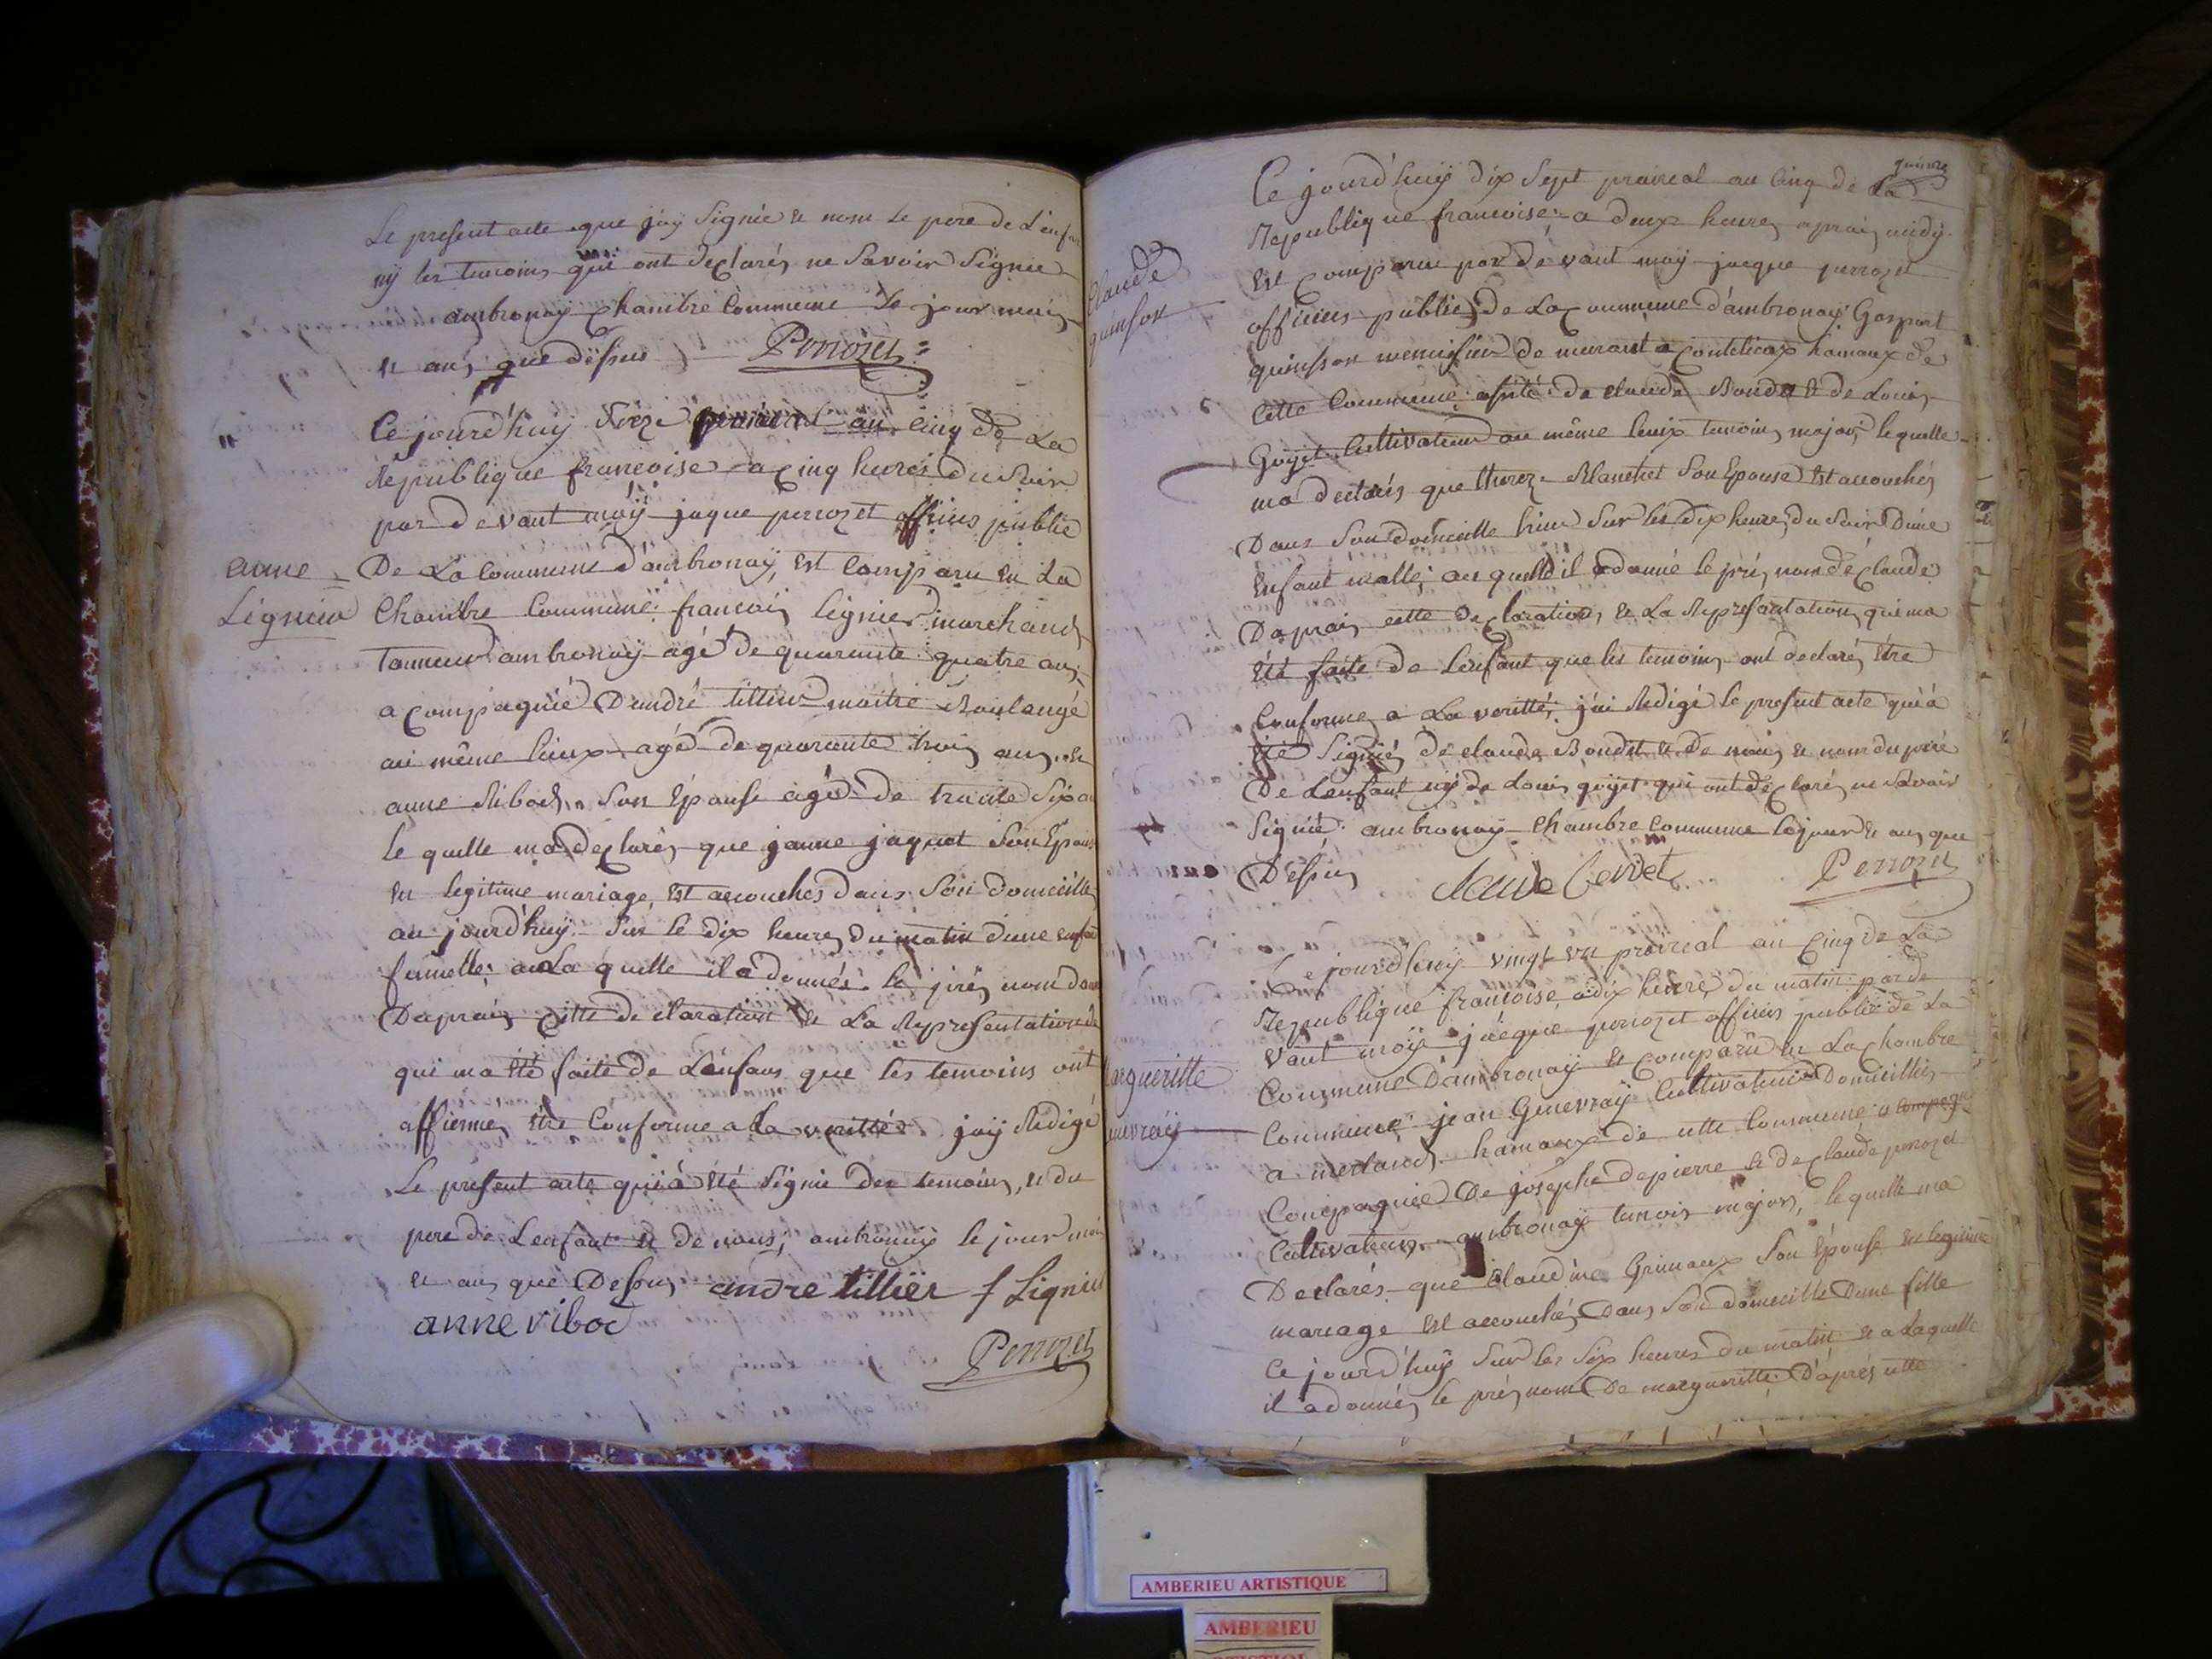 Le present acte que jay Signée et nom le pere de L'enfan
ny les temoins qui ont declarés ne Savoir Signie
ambronay chambre Commune le jour mois
et ans que dessus Perrozet
Ce jourd'huy an cinq de La
Republique francoise a cinq heures du Soir
par devant moÿ jaque perrozet officies public
De La Commune d'ambronay, est comparu en La
anne
Lignier
Chambre Commune francois lignier marchand
Tanneur ambronay agé de quarente quatre ans
acompagnié D'andré tillier maitre Boulangé
au même lieux agé de quarente trois ans et
anne Ribod Son Epouse agé de trante Six a
le quelle ma declarés que janne jaquet Son Epous
en legitime mariage, est accouches dans Son domicille
au jourd'huÿ Sur le dix heures du matin dune enfan
fumelle; a La quelle il a donnés le prés nom dan
Daprais cette declaration et La Represantation
qui ma été faite de L'enfans que les temoins ont
affiermes étre Conforme a La verittés jay Redigé
Le present acte qui à été Signié des temoins, et du
pere de Lenfant et de nous, ambronay le jour moi
et ans que Dessus andre tillier f Lignier
anne ribod
Perrozet
quinze
Ce jourd'huÿ dix Sept praireal an Cinq de La
Republique francoise; a deux heures aprais midy
Claude
quinson
est comparu par dévant moÿ jacque perrozet
officies public de La Commune d'ambronay Gaspart
quinson menusier de murant a Coutelieux hamaux de
Cette Commune; asité de claude Boudet et de Louis
Goyet Cultivateur au même lieux temoins majors; le quelle
ma declarés que therez Blanchet Son Epouse est accouchés
Dans Son domicille hier Sur les dix heures du Soir Dune
Enfant malle; au quelle il a donné le prés nom de Claude
Daprais cette declaration, et La Represantation qui ma
été faite de lenfant que les temoins ont declarés être
Conforme a La veritté; j'ai Redigé le present acte qui à
été Signiés de claude Boudet et de nous et nom du pere
De Lenfant nÿ de Louis goyet qui ont declarés ne Savoir
Signié ambronay Chambre Commune le jour et ans que
Dessus Perrozet
Ce jourd'huÿ vingt un prairéal an Cinq de La
Republique francoise, a dix heures du matin par de
vant moÿ jacque perrozet officies public de La
Commune D'ambronay est comparu en La Chambre
argueritte
nevray
Commune: jean Genevray Cultivateur Domicilliés
a merland hamaux de cette Commune a compagn
Compagnié De josephe depierre et de claude perrozet
Cultivateurs ambronay temois majors, le quelle ma
Declarés que Claudine Grimaux Son épouse en legitime
mariage est accouchés, Dans Son domicille Dune fille
Ce jourd'huÿ Sur les Six heures du matin et a Laquelle
il a donnés le prés nom De margueritte. D'aprés cette
AMBERIEU ARTISTIQUE
AMBERIEU